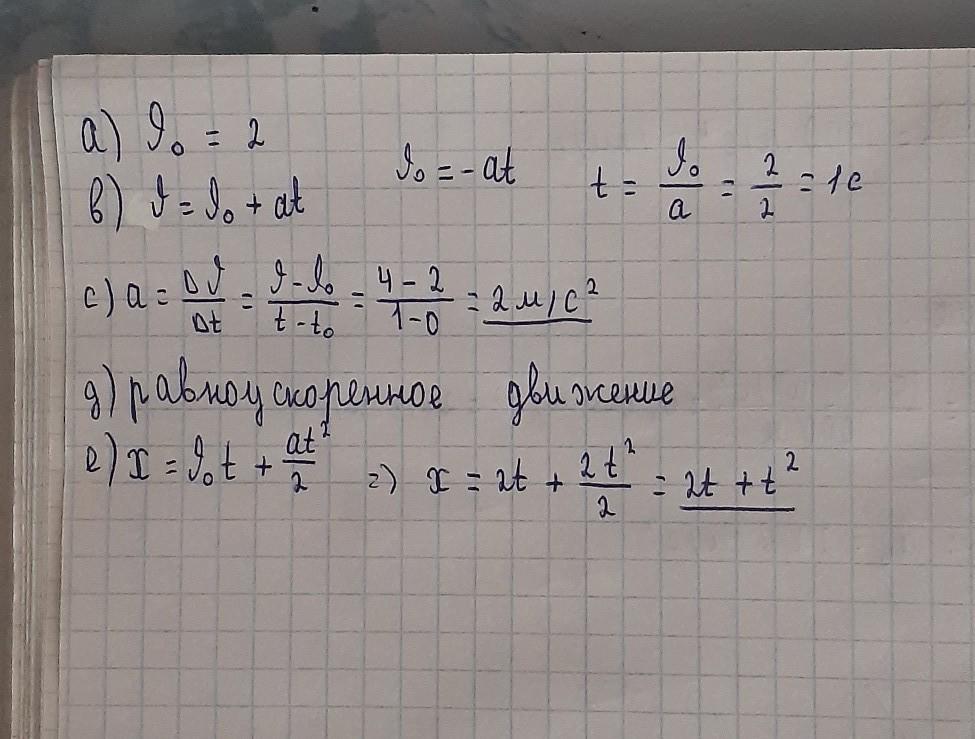 а) ϑ₀ = 2
в) ϑ = ϑ₀ + at     ϑ₀ = - at     t = ϑ₀/a = 2/2 = 1с
с) a = Δϑ/Δt = (ϑ - ϑ₀)/(t - t₀) = (4 - 2)/(1 - 0) = 2 м/с²
д) равноускоренное движение
е) x = ϑ₀t + at²/2 => x = 2t + 2t²/2 = 2t + t²